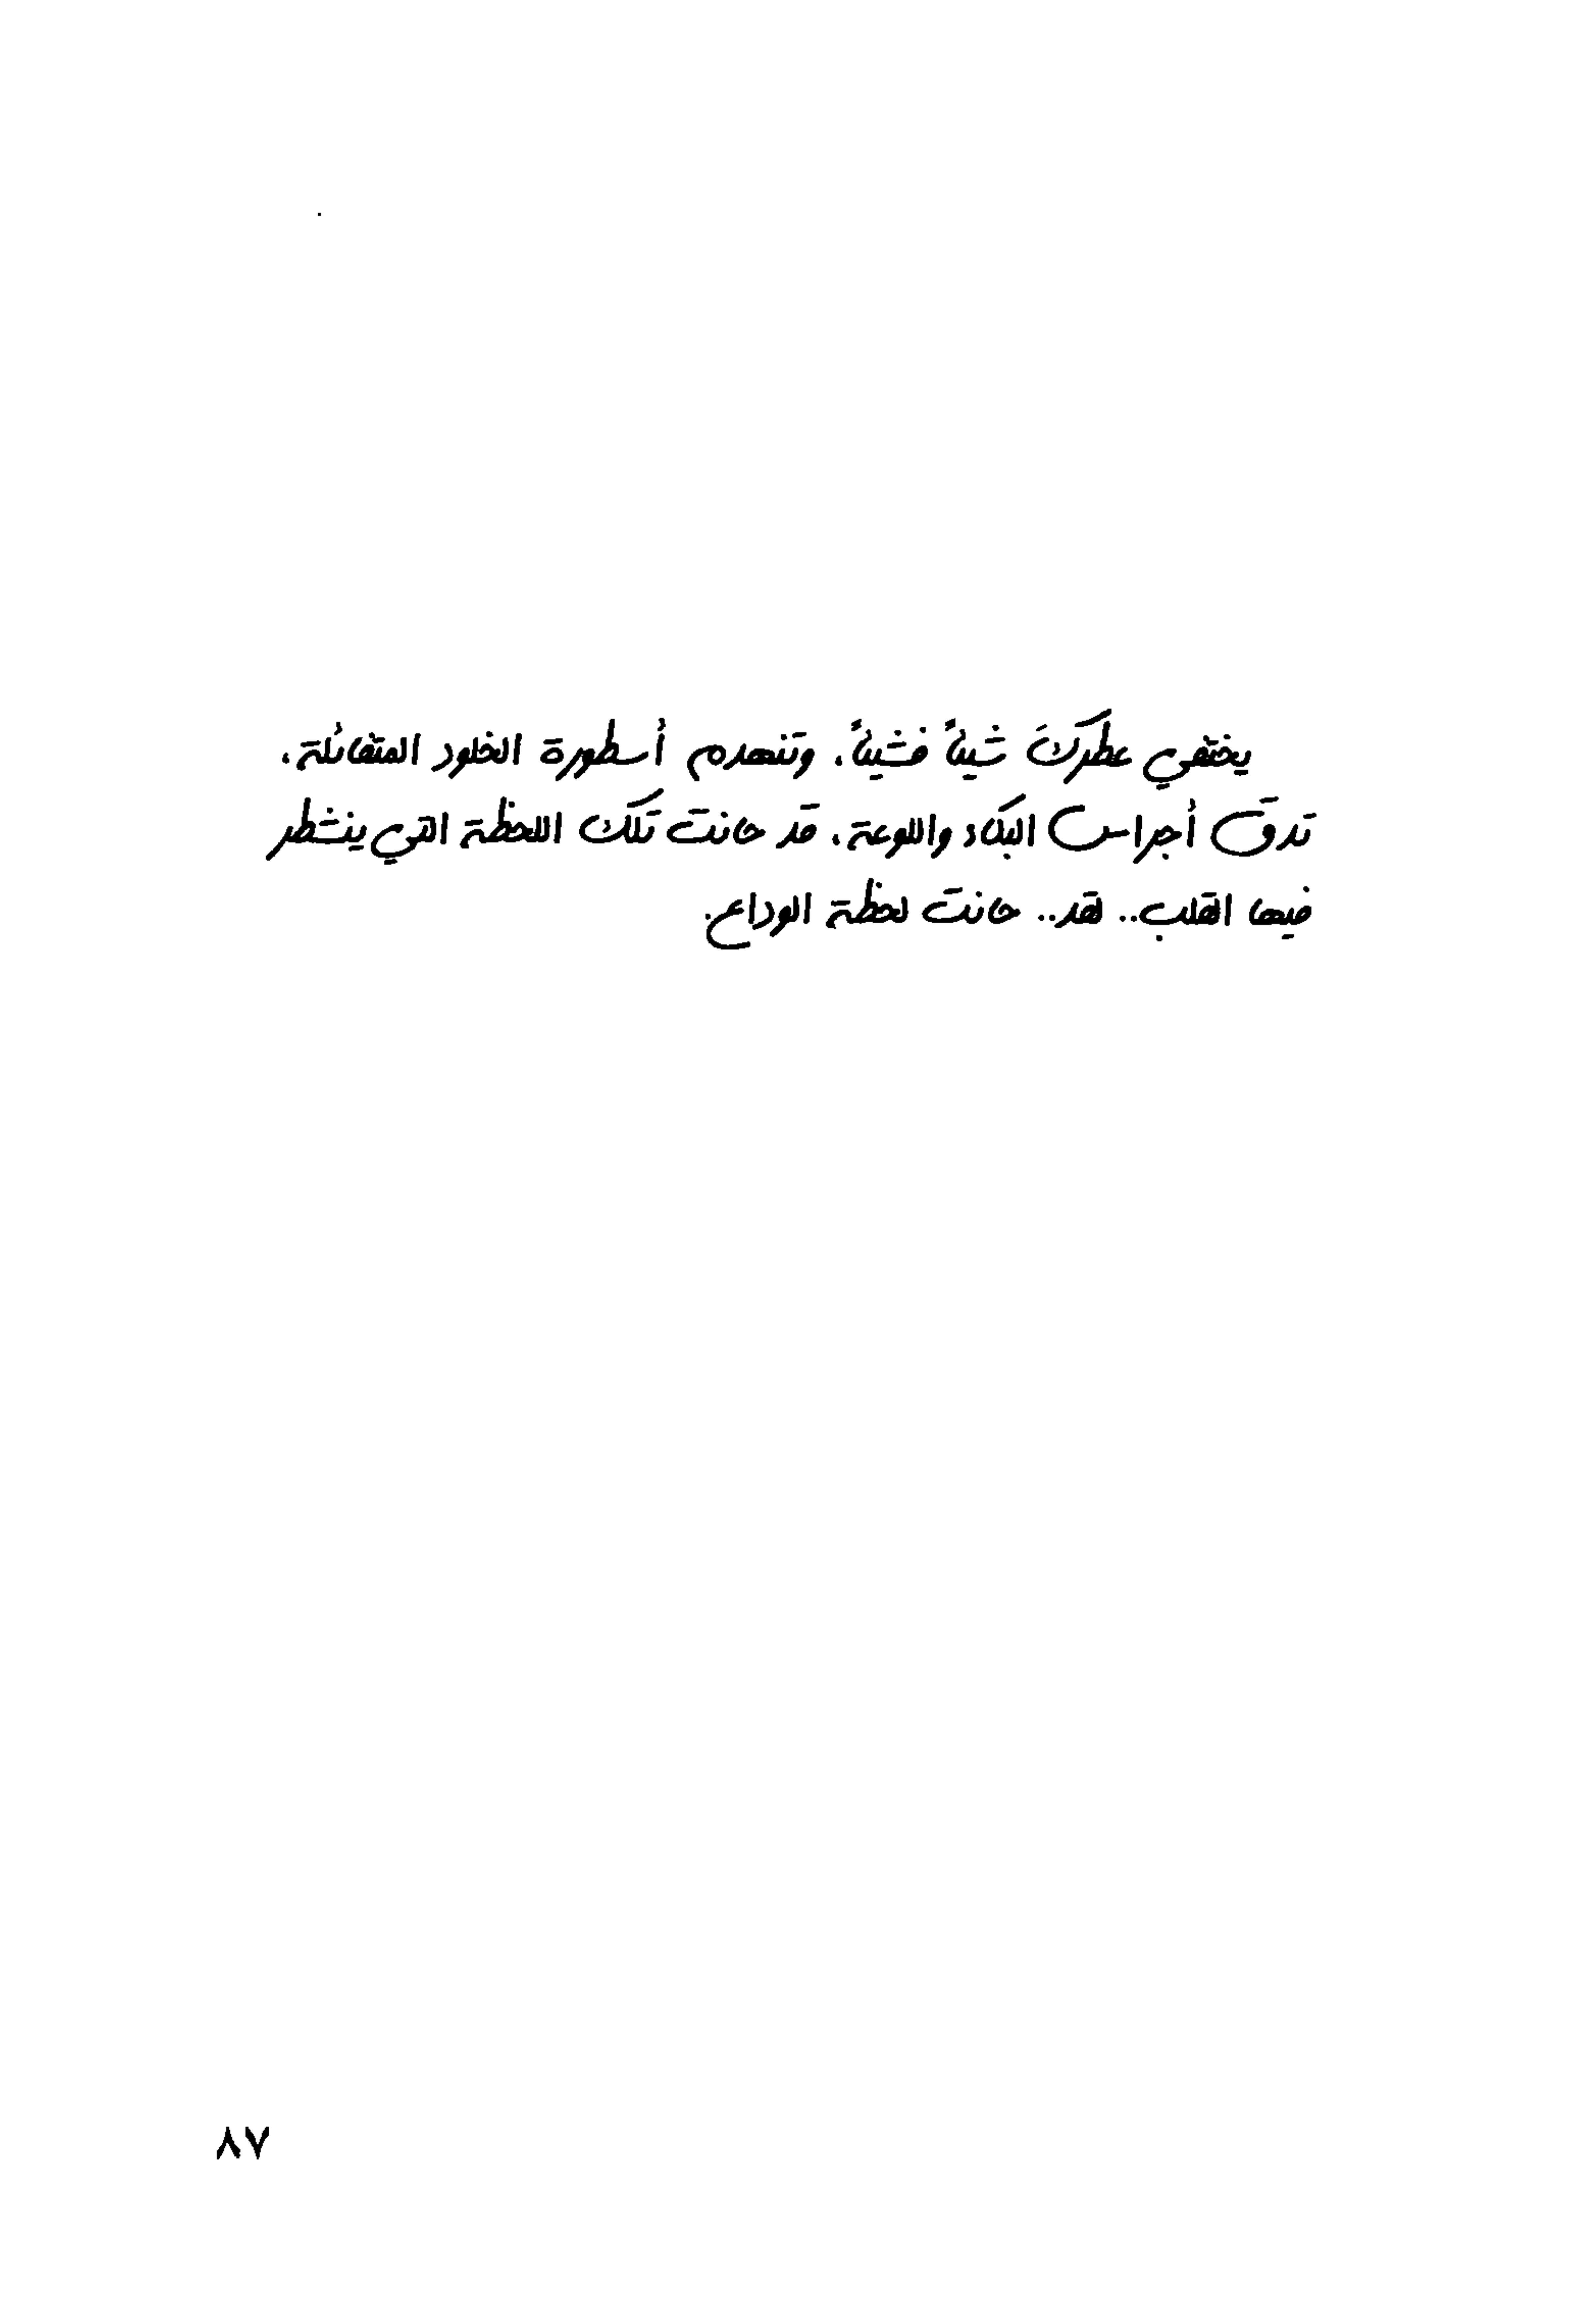 يختفي عطركَ شيئاً فشيئاً، وتنهدم أسطورة الخلود المتفائلة،
تدق أجراس البكاء واللوعة، قد حانت تلك اللحظة التي ينشطر
فيها القلب.. لقد.. حانت لحظة الوداع.
٨٧